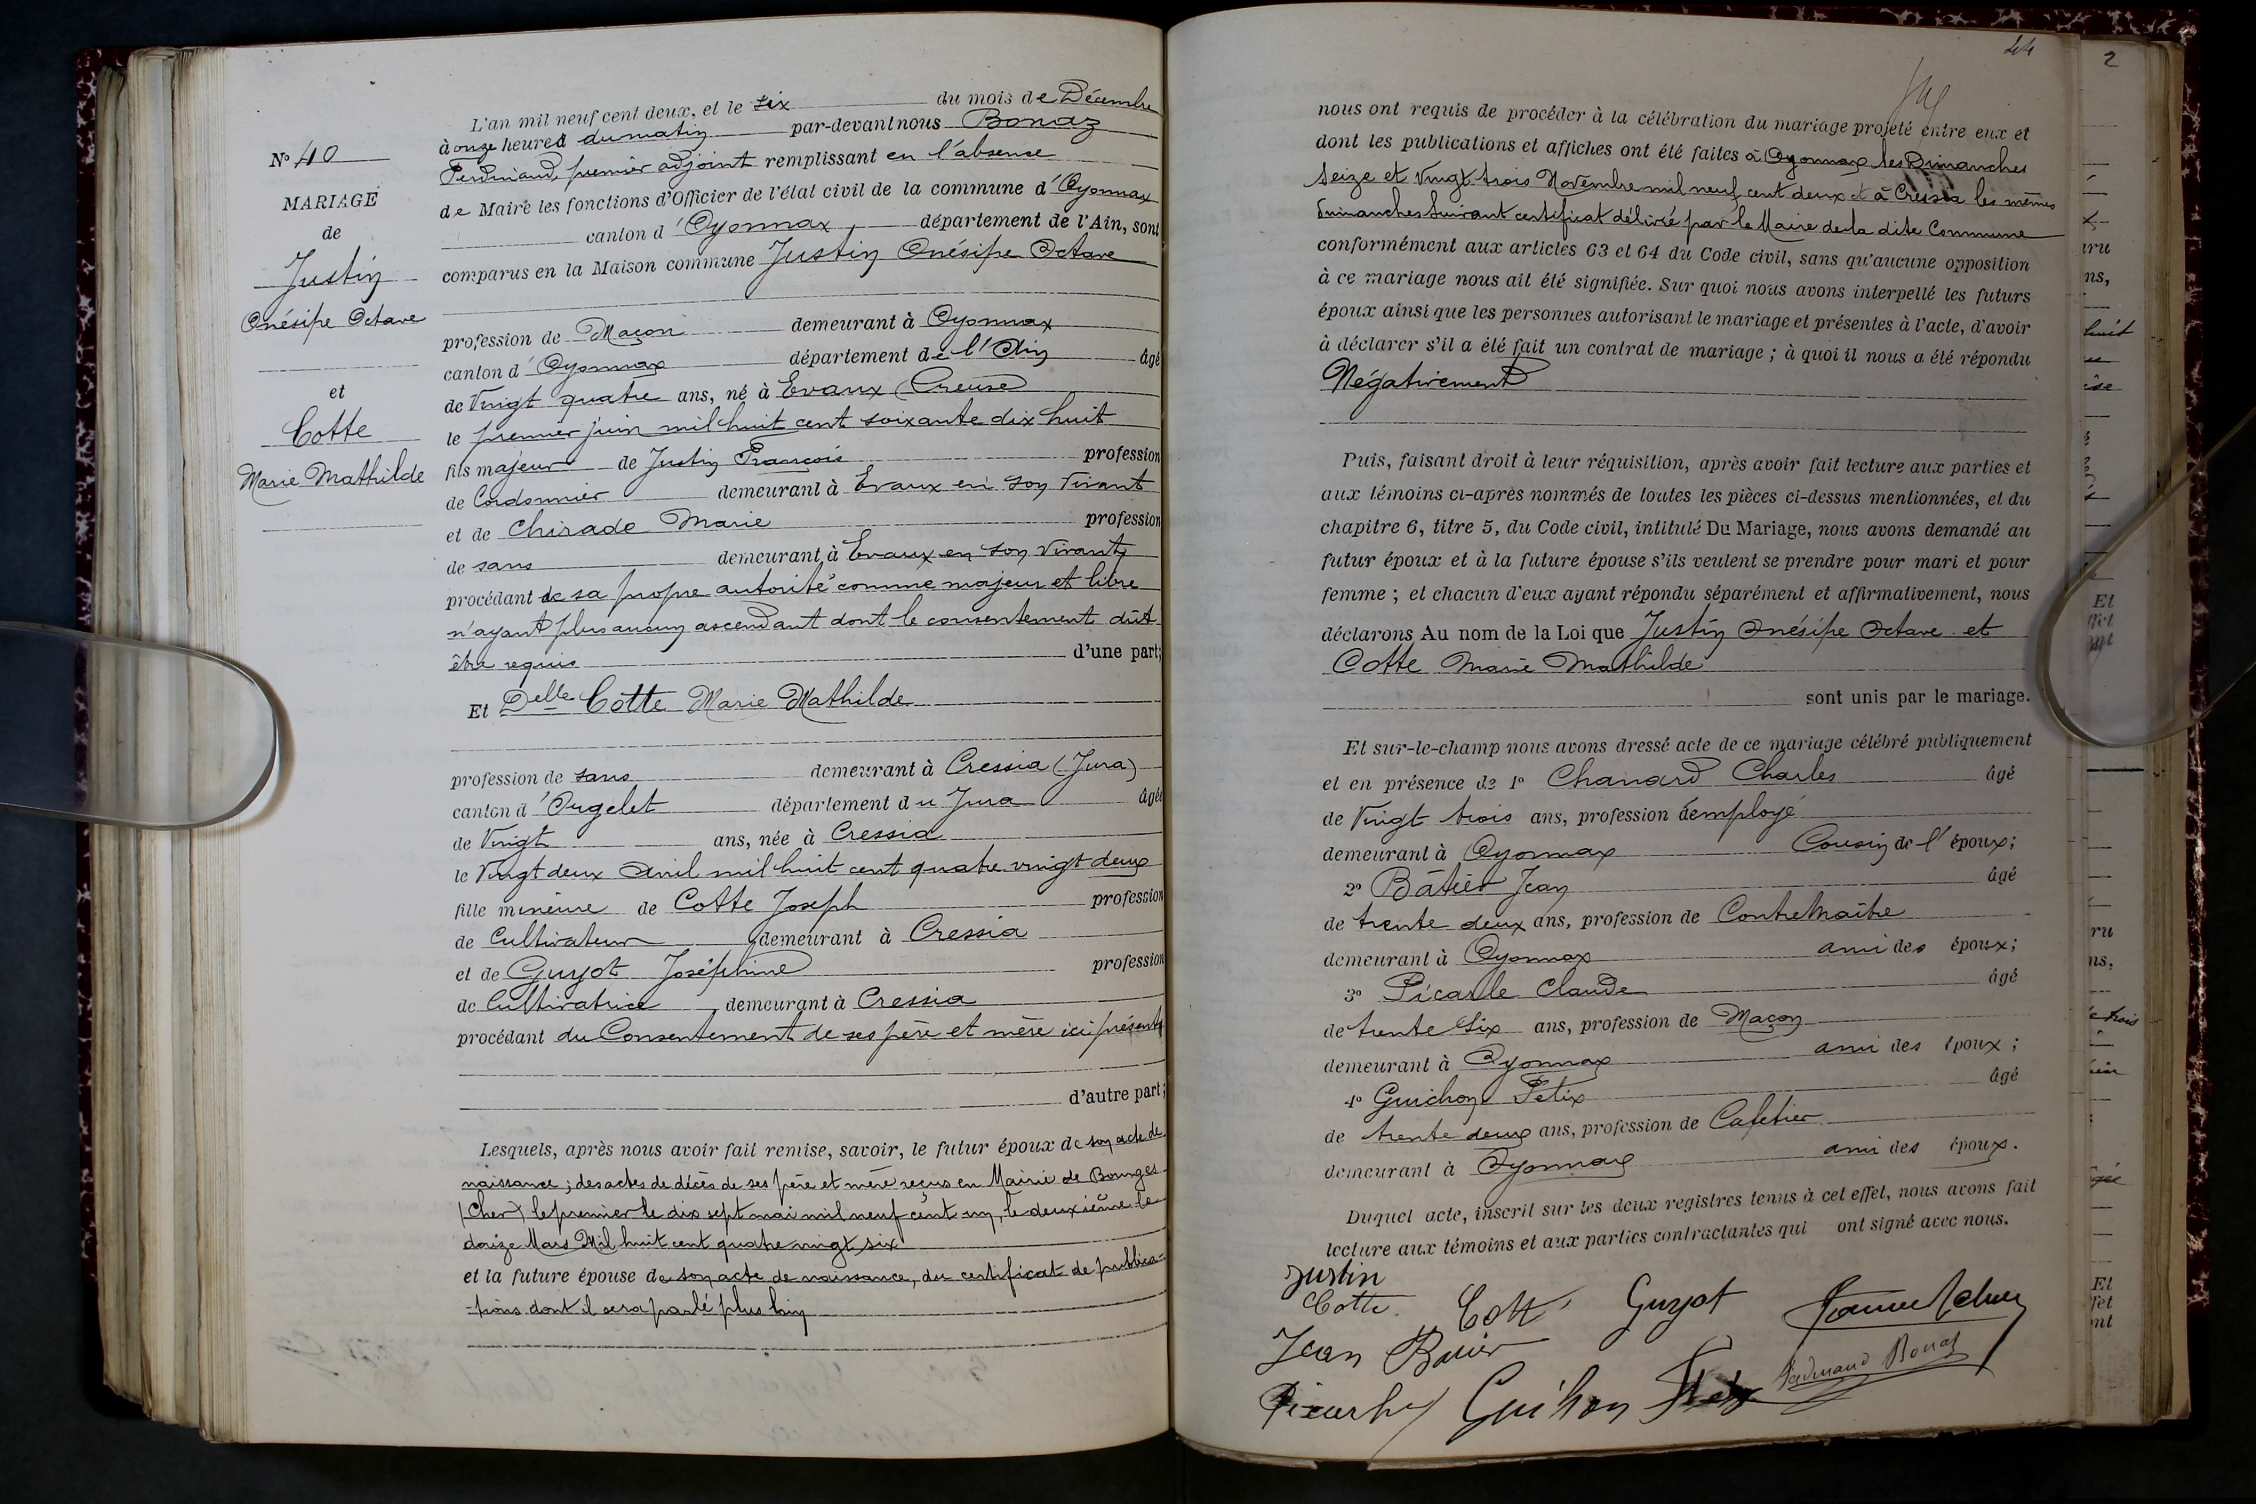 L'an mil neuf cent deux, et le six du mois de Décembre
à onze heures du matin par-devant nous Bonaz
Ferdinand, premier adjoint remplissant en l'absence
de Maire les fonctions d'Officier de l'état civil de la commune d'Oyonnax
canton d'Oyonnax, département de l'Ain, sont
comparus en la Maison commune Justin Onésipe Octave
profession de Maçon demeurant à Oyonnax
canton d'Oyonnax département de l'Ain âgé
de Vingt quatre ans, né à Evaux (Creuse)
le premier juin mil huit cent soixante dix huit
fils majeur de Justin François profession
de Cordonnier demeurant à Evaux en son vivant
et de Chirade Marie profession
de sans demeurant à Evaux en son vivant
procédant de sa propre autorité comme majeur et libre
n'ayant plus aucun ascendant dont le consentement dût
être requis d'une part;
Et Delle Cotte Marie Mathilde
profession de sans demeurant à Cressia (Jura)
canton d'Orgelet département du Jura âgée
de Vingt ans, née à Cressia
le Vingt deux Avril mil huit cent quatre vingt deux
fille mineure de Cotte Joseph profession
de Cultivateur demeurant à Cressia
et de Guyot Joséphine profession
de Cultivatrice demeurant à Cressia
procédant du Consentement de ses père et mère ici présents
d'autre part;
Lesquels, après nous avoir fait remise, savoir, le futur époux de son acte de
naissance; des actes de décès de ses père et mère reçus en Mairie de Bourges
(Cher) le premier le dix sept mai mil neuf cent un, le deuxième le
douze Mars Mil huit cent quatre vingt six
et la future épouse de son acte de naissance, du certificat de publica-
-tions dont il sera parlé plus loin
No 40
MARIAGE
de
Justin
Onésipe Octave
et
Cotte
Marie Mathilde
nous ont requis de procéder à la célébration du mariage projeté entre eux et
dont les publications et affiches ont été faites à Oyonnax les Dimanches
Seize et Vingt trois Novembre mil neuf cent deux et à Cressia les mêmes
Dimanches suivant certificat délivré par le Maire de la dite Commune
conformément aux articles 63 et 64 du Code civil, sans qu'aucune opposition
à ce mariage nous ait été signifiée. Sur quoi nous avons interpellé les futurs
époux ainsi que les personnes autorisant le mariage et présentes à l'acte, d'avoir
à déclarer s'il a été fait un contrat de mariage; à quoi il nous a été répondu
Négativement
Puis, faisant droit à leur réquisition, après avoir fait lecture aux parties et
aux témoins ci-après nommés de toutes les pièces ci-dessus mentionnées, et du
chapitre 6, titre 5, du Code civil, intitulé Du Mariage, nous avons demandé au
futur époux et à la future épouse s'ils veulent se prendre pour mari et pour
femme; et chacun d'eux ayant répondu séparément et affirmativement, nous
déclarons Au nom de la Loi que Justin Onésipe Octave et
Cotte Marie Mathilde
sont unis par le mariage.
Et sur-le-champ nous avons dressé acte de ce mariage célébré publiquement
et en présence de 1º Chanard Charles âgé
de Vingt trois ans, profession d'employé
demeurant à Oyonnax Cousin de l'époux;
2º Bâtier Jean âgé
de trente deux ans, profession de Contremaître
demeurant à Oyonnax ami des époux;
3º Picarle Claude âgé
de trente six ans, profession de Maçon
demeurant à Oyonnax ami des époux;
4º Guichon Félix âgé
de trente deux ans, profession de Cafetier
demeurant à Oyonnax ami des époux.
Duquel acte, inscrit sur les deux registres tenus à cet effet, nous avons fait
lecture aux témoins et aux parties contractantes qui ont signé avec nous.
Justin
Cotte. Cotte Guyot
Jean
Guihon Félix Ferdinand Bonaz
2